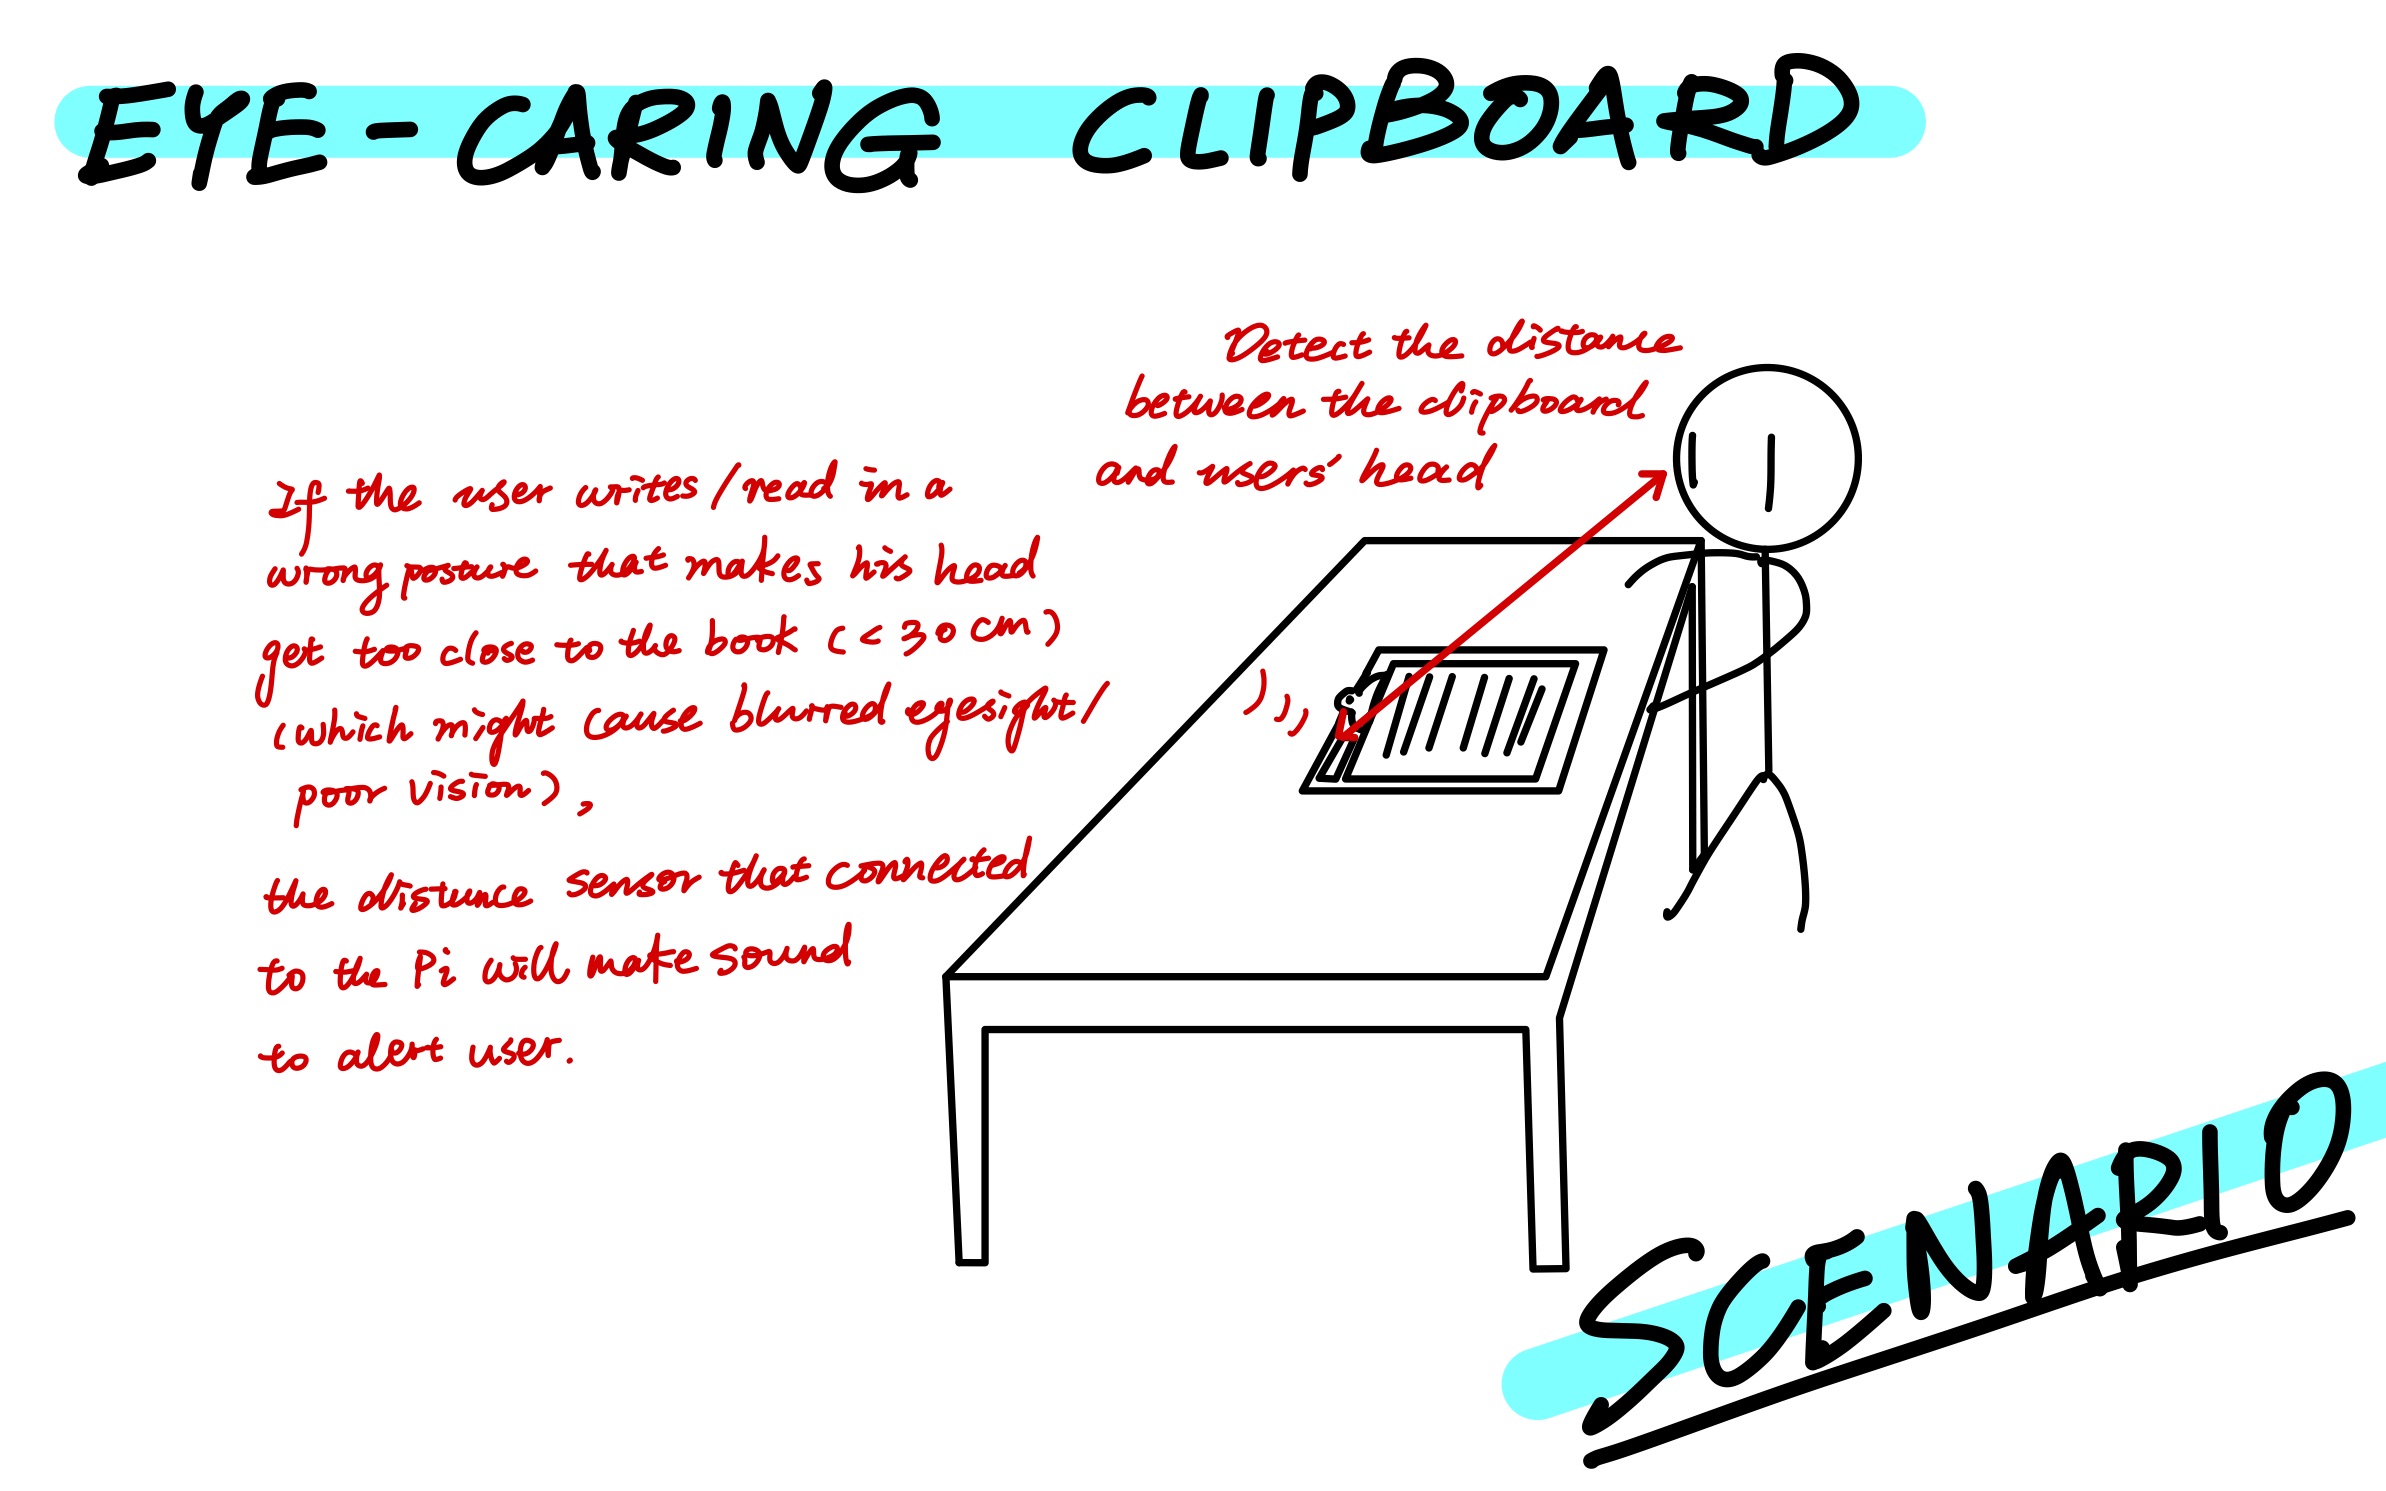 EYE-CARING CLIPBOARD
Detect the distance
between the clipboard
and users' head
If the user writes/read in a
wrong posture that makes his head
get too close to the book (<30cm)
(which might cause blurred eyesight/
poor vision),
the distance sensor that connected
to the Pi will make sound
to alert user.
SCENARIO